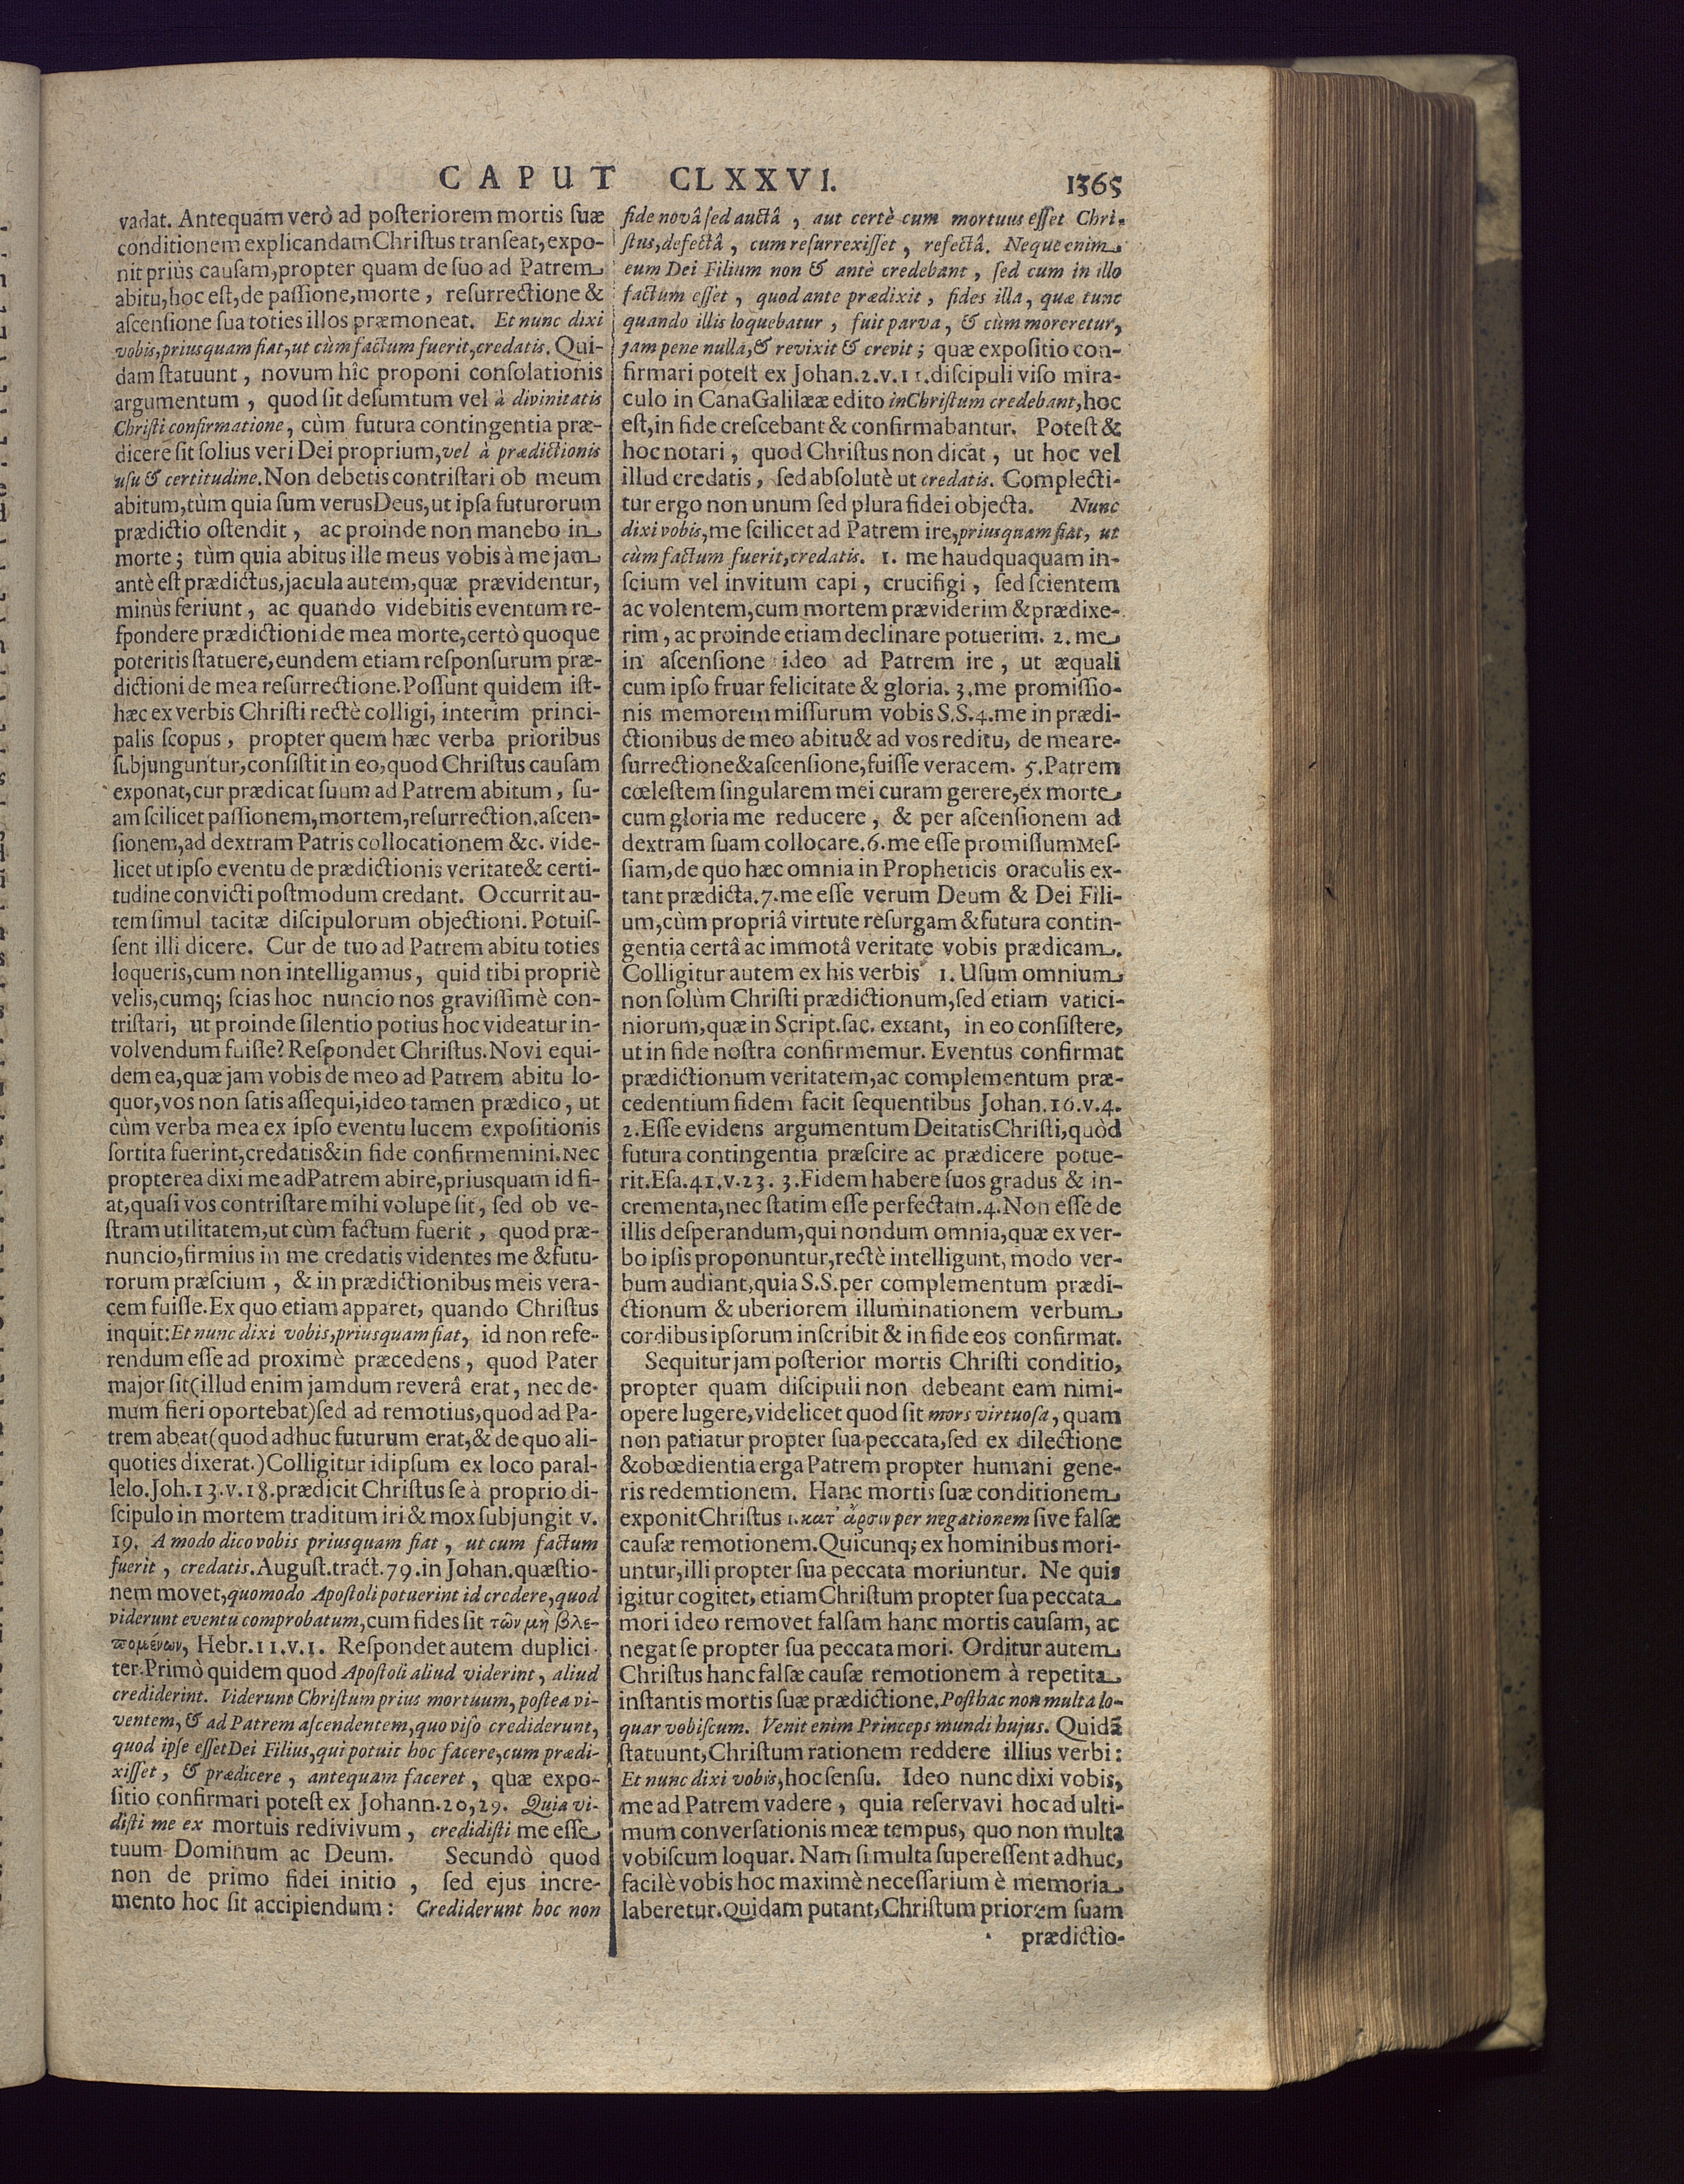 CAPUT CLXXVI. 1365
vadat. Antequam verò ad poſteriorem mortis ſuæ
conditionem explicandam Chriſtus tranſeat, expo-
nit priùs cauſam, propter quam de ſuo ad Patrem
abitu, hoc eſt, de paſſione, morte, reſurrectione &
aſcenſione ſua toties illos præmoneat. Et nunc dixi
vobis, priusquam fiat, ut cùm factum fuerit, credatis. Qui-
dam ſtatuunt, novum hîc proponi conſolationis
argumentum, quod ſit deſumtum vel à divinitatis
Chriſti confirmatione, cùm futura contingentia præ-
dicere ſit ſolius veri Dei proprium, vel à prædictionis
uſu & certitudine. Non debetis contriſtari ob meum
abitum, tùm quia ſum verus Deus, ut ipſa futurorum
prædictio oſtendit, ac proinde non manebo in
morte; tùm quia abitus ille meus vobis à me jam
antè eſt prædictus, jacula autem, quæ prævidentur,
minùs feriunt, ac quando videbitis eventum re-
ſpondere prædictioni de mea morte, certò quoque
poteritis ſtatuere, eundem etiam reſponſurum præ-
dictioni de mea reſurrectione. Poſſunt quidem iſt-
hæc ex verbis Chriſti rectè colligi, interim princi-
palis ſcopus, propter quem hæc verba prioribus
ſubjunguntur, conſiſtit in eo, quod Chriſtus cauſam
exponat, cur prædicat ſuum ad Patrem abitum, ſu-
am ſcilicet paſſionem, mortem, reſurrection. aſcen-
ſionem, ad dextram Patris collocationem &c. vide-
licet ut ipſo eventu de prædictionis veritate & certi-
tudine convicti poſtmodum credant. Occurrit au-
tem ſimul tacitæ diſcipulorum objectioni. Potuiſ-
ſent illi dicere. Cur de tuo ad Patrem abitu toties
loqueris, cum non intelligamus, quid tibi propriè
velis, cumq; ſcias hoc nuncio nos graviſſimè con-
triſtari, ut proinde ſilentio potius hoc videatur in-
volvendum fuiſſe? Reſpondet Chriſtus. Novi equi-
dem ea, quæ jam vobis de meo ad Patrem abitu lo-
quor, vos non ſatis aſſequi, ideo tamen prædico, ut
cùm verba mea ex ipſo eventu lucem expoſitionis
ſortita fuerint, credatis & in fide confirmemini. Nec
propterea dixi me ad Patrem abire, priusquam id fi-
at, quaſi vos contriſtare mihi volupe ſit, ſed ob ve-
ſtram utilitatem, ut cùm factum fuerit, quod præ-
nuncio, firmius in me credatis videntes me & futu-
rorum præſcium, & in prædictionibus meis vera-
cem fuiſſe. Ex quo etiam apparet, quando Chriſtus
inquit: Et nunc dixi vobis, priusquam fiat, id non refe-
rendum eſſe ad proximè præcedens, quod Pater
major ſit (illud enim jamdum reverâ erat, nec de-
mum fieri oportebat) ſed ad remotius, quod ad Pa-
trem abeat (quod adhuc futurum erat, & de quo ali-
quoties dixerat.) Colligitur id ipſum ex loco paral-
lelo. Joh. 13. v. 18. prædicit Chriſtus ſe à proprio di-
ſcipulo in mortem traditum iri & mox ſubjungit v.
19. A modo dico vobis priusquam fiat, ut cum factum
fuerit, credatis. Auguſt. tract. 79. in Johan. quæſtio-
nem movet, quomodo Apoſtoli potuerint id credere, quod
viderunt eventu comprobatum, cum fides ſit τῶν μὴ βλε-
πομένων, Hebr. 11. v. 1. Reſpondet autem duplici-
ter. Primò quidem quod Apoſtoli aliud viderint, aliud
crediderint. Viderunt Chriſtum prius mortuum, poſtea vi-
ventem, & ad Patrem aſcendentem, quo viſo crediderunt,
quod ipſe eſſet Dei Filius, qui potuit hoc facere, cum prædi-
xiſſet, & prædicere, antequam faceret, quæ expo-
ſitio confirmari poteſt ex Johann. 20, 29. Quia vi-
diſti me ex mortuis redivivum, credidiſti me eſſe
tuum Dominum ac Deum. Secundò quod
non de primo fidei initio, ſed ejus incre-
mento hoc ſit accipiendum: Crediderunt hoc non
fide novâ ſed auctâ, aut certè cum mortuus eſſet Chri-
ſtus, defectâ, cum reſurrexiſſet, refectâ. Neque enim
eum Dei Filium non & antè credebant, ſed cum in illo
factum eſſet, quod ante prædixit, fides illa, quæ tunc
quando illis loquebatur, fuit parva, & cùm moreretur,
jam pene nulla, & revixit & crevit; quæ expoſitio con-
firmari poteſt ex Johan. 2. v. 11. diſcipuli viſo mira-
culo in Cana Galilææ edito in Chriſtum credebant, hoc
eſt, in fide creſcebant & confirmabantur. Poteſt &
hoc notari, quod Chriſtus non dicat, ut hoc vel
illud credatis, ſed abſolutè ut credatis. Complecti-
tur ergo non unum ſed plura fidei objecta. Nunc
dixi vobis, me ſcilicet ad Patrem ire, priusquam fiat, ut
cùm factum fuerit, credatis. 1. me haudquaquam in-
ſcium vel invitum capi, crucifigi, ſed ſcientem
ac volentem, cum mortem præviderim & prædixe-
rim, ac proinde etiam declinare potuerim. 2. me
in aſcenſione ideo ad Patrem ire, ut æquali
cum ipſo fruar felicitate & gloria. 3. me promiſſio-
nis memorem miſſurum vobis S.S. 4. me in prædi-
ctionibus de meo abitu & ad vos reditu, de mea re-
ſurrectione & aſcenſione, fuiſſe veracem. 5. Patrem
cœleſtem ſingularem mei curam gerere, ex morte
cum gloria me reducere, & per aſcenſionem ad
dextram ſuam collocare. 6. me eſſe promiſſum Meſ-
ſiam, de quo hæc omnia in Propheticis oraculis ex-
tant prædicta. 7. me eſſe verum Deum & Dei Fili-
um, cùm propriâ virtute reſurgam & futura contin-
gentia certâ ac immotâ veritate vobis prædicam.
Colligitur autem ex his verbis 1. Uſum omnium
non ſolùm Chriſti prædictionum, ſed etiam vatici-
niorum, quæ in Script. ſac. extant, in eo conſiſtere,
ut in fide noſtra confirmemur. Eventus confirmat
prædictionum veritatem, ac complementum præ-
cedentium fidem facit ſequentibus Johan. 16. v. 4.
2. Eſſe evidens argumentum Deitatis Chriſti, quòd
futura contingentia præſcire ac prædicere potue-
rit. Eſa. 41. v. 23. 3. Fidem habere ſuos gradus & in-
crementa, nec ſtatim eſſe perfectam. 4. Non eſſe de
illis deſperandum, qui nondum omnia, quæ ex ver-
bo ipſis proponuntur, rectè intelligunt, modo ver-
bum audiant, quia S.S. per complementum prædi-
ctionum & uberiorem illuminationem verbum
cordibus ipſorum inſcribit & in fide eos confirmat.
Sequitur jam poſterior mortis Chriſti conditio,
propter quam diſcipuli non debeant eam nimi-
opere lugere, videlicet quod ſit mors virtuoſa, quam
non patiatur propter ſua peccata, ſed ex dilectione
& obœdientia erga Patrem propter humani gene-
ris redemtionem. Hanc mortis ſuæ conditionem
exponit Chriſtus 1. κατ' ἄρσιν per negationem ſive falſæ
cauſæ remotionem. Quicunq; ex hominibus mori-
untur, illi propter ſua peccata moriuntur. Ne quis
igitur cogitet, etiam Chriſtum propter ſua peccata
mori ideo removet falſam hanc mortis cauſam, ac
negat ſe propter ſua peccata mori. Orditur autem
Chriſtus hanc falſæ cauſæ remotionem à repetita
inſtantis mortis ſuæ prædictione. Poſthac non multa lo-
quar vobiſcum. Venit enim Princeps mundi hujus. Quidā
ſtatuunt, Chriſtum rationem reddere illius verbi:
Et nunc dixi vobis, hoc ſenſu. Ideo nunc dixi vobis,
me ad Patrem vadere, quia reſervavi hoc ad ulti-
mum converſationis meæ tempus, quo non multa
vobiſcum loquar. Nam ſi multa ſupereſſent adhuc,
facilè vobis hoc maximè neceſſarium è memoria
laberetur. Quidam putant, Chriſtum priorem ſuam
prædictio-